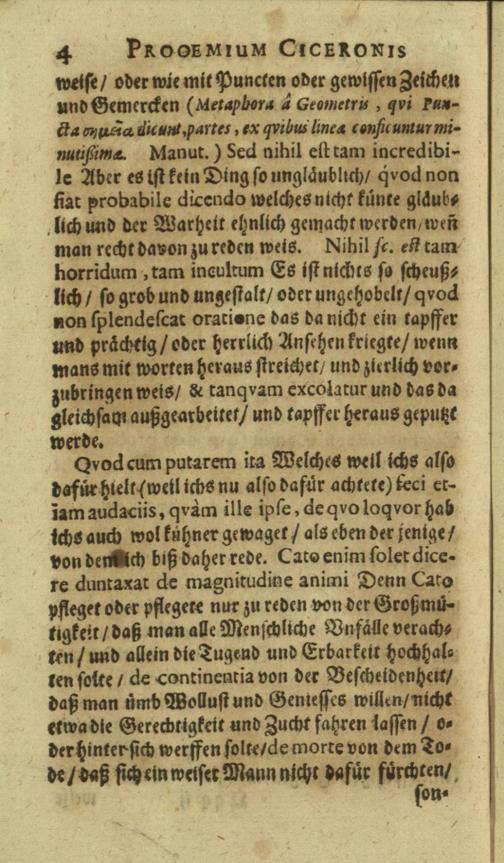 4 PROOEMIUM CICERONIS
weise/ oder wie mit Puncten oder gewissen Zeichen
und Gemercken (Metaphora â Geometris, qvi Pun-
cta σημεῖα dicunt, partes, ex qvibus linea conficiuntur mi-
nutißimæ. Manut.) Sed nihil est tam incredibi-
le Aber es ist kein Ding so ungläublich/ qvod non
fiat probabile dicendo welches nicht künte gläub-
lich und der Warheit ehnlich gemacht werden/ weñ
man recht davon zu reden weis. Nihil sc. est tam
horridum, tam incultum Es ist nichts so scheuß-
lich/ so grob und ungestalt/ oder ungehobelt/ qvod
non splendescat oratione das da nicht ein tapffer
und prächtig/ oder herrlich Ansehen kriegte/ wenn
mans mit worten heraus streichet/ und zierlich vor-
zubringen weis/ & tanqvam excolatur und das da
gleichsam außgearbeitet/ und tapffer heraus geputzt
werde.
Qvod cum putarem ita Welches weil ichs also
dafür hielt (weil ichs nu also dafür achtete) feci et-
iam audaciis, qvàm ille ipse, de qvo loqvor hab
ichs auch wol kühner gewaget/ als eben der jenige/
von dem ich biß daher rede. Cato enim solet dice-
re duntaxat de magnitudine animi Denn Cato
pfleget oder pflegete nur zu reden von der Großmü-
tigkeit/ daß man alle Menschliche Vnfälle verach-
ten/ und allein die Tugend und Erbarkeit hochhal-
ten solte/ de continentia von der Bescheidenheit/
daß man ümb Wollust und Geniesses willen/ nicht
etwa die Gerechtigkeit und Zucht fahren lassen/ o-
der hinter sich werffen solte/ de morte von dem To-
de/ daß sich ein weiser Mann nicht dafür fürchten/
son-